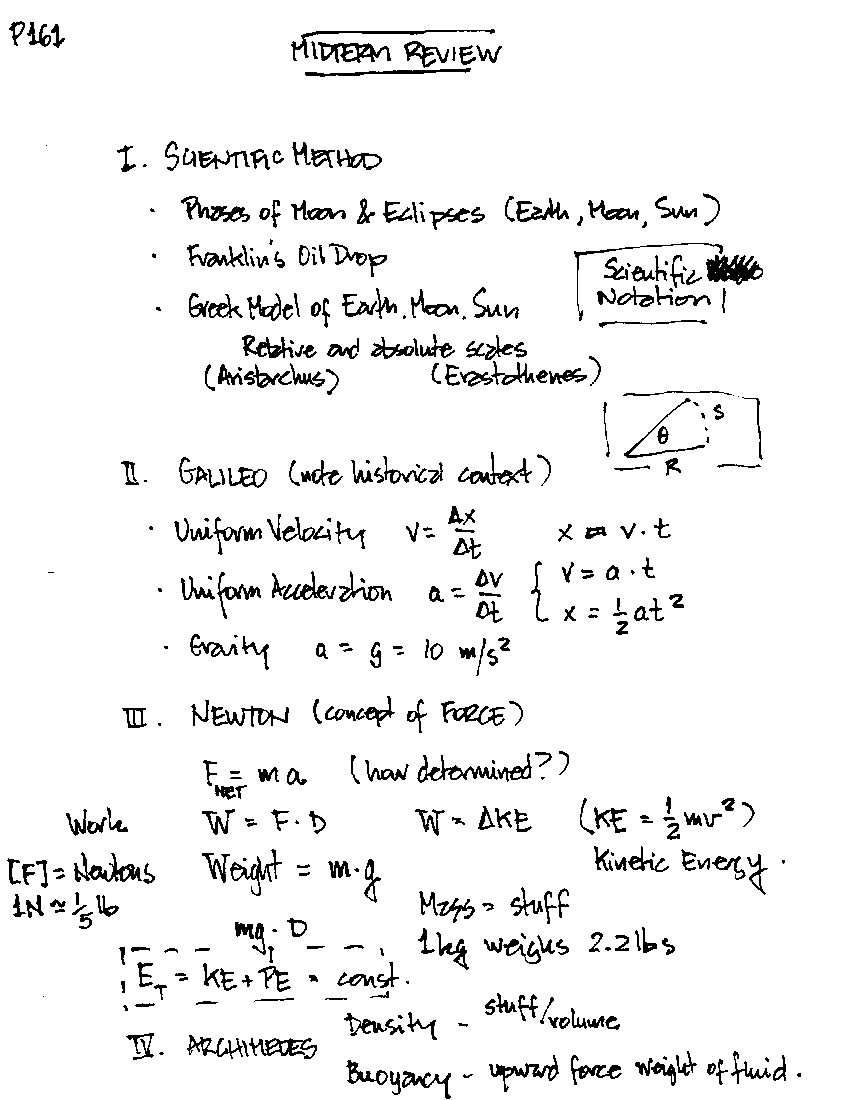 P161
MIDTERM REVIEW
I. SCIENTIFIC METHOD
· Phases of Moon & Eclipses (Earth, Moon, Sun)
· Franklin's Oil Drop
Scientific
Notation!
· Greek Model of Earth, Moon, Sun
Relative and absolute scales
(Aristarchus) (Erastothenes)
θ S
R
II. GALILEO (note historical context)
· Uniform Velocity v = Δx/Δt x = v·t
· Uniform Acceleration a = Δv/Δt { v = a·t
x = ½at²
· Gravity a = g = 10 m/s²
III. NEWTON (concept of FORCE)
F_NET = ma (how determined?)
Work W = F·D W = ΔKE (KE = ½mv²)
Kinetic Energy.
[F] = Newtons Weight = m·g
1N ≃ 1/5 lb
Mass = stuff
mg·D
1kg weighs 2.2 lbs
E_T = KE + PE = const.
Density - stuff/volume
IV. ARCHIMEDES
Buoyancy - upward force weight of fluid.